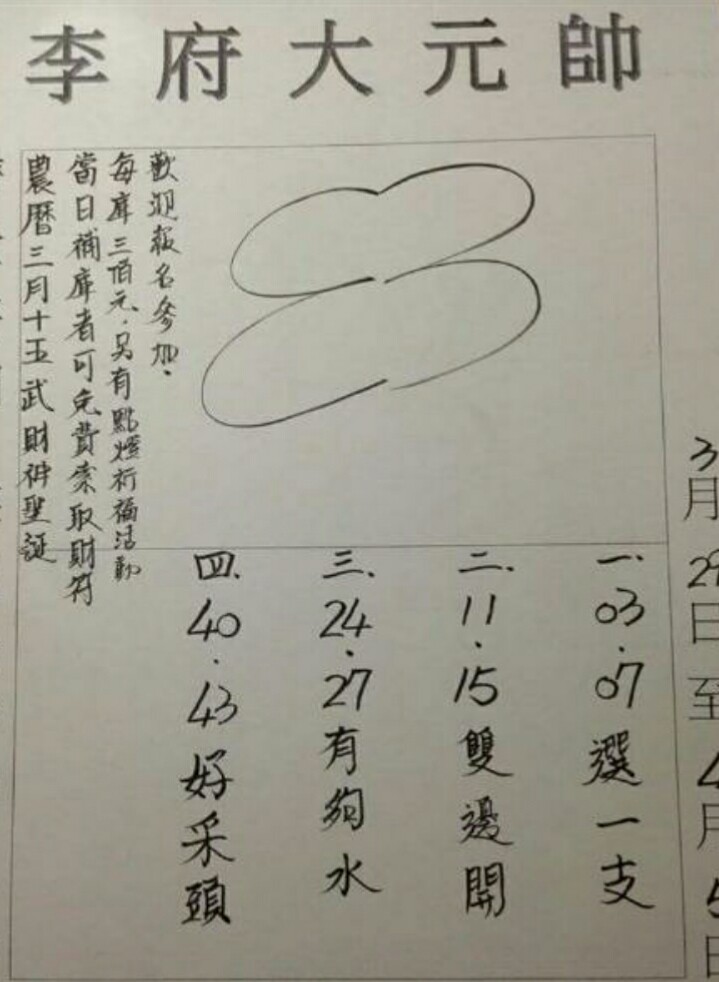 李府大元帥
3月29日至4月5日
一.03.07選一支
二.11.15雙邊開
三.24.27有夠水
四.40.43好采頭
農曆三月十五武財神聖誕
當日補庫者可免費索取財符
每庫三佰元.另有點燈祈福活動
歡迎報名參加.